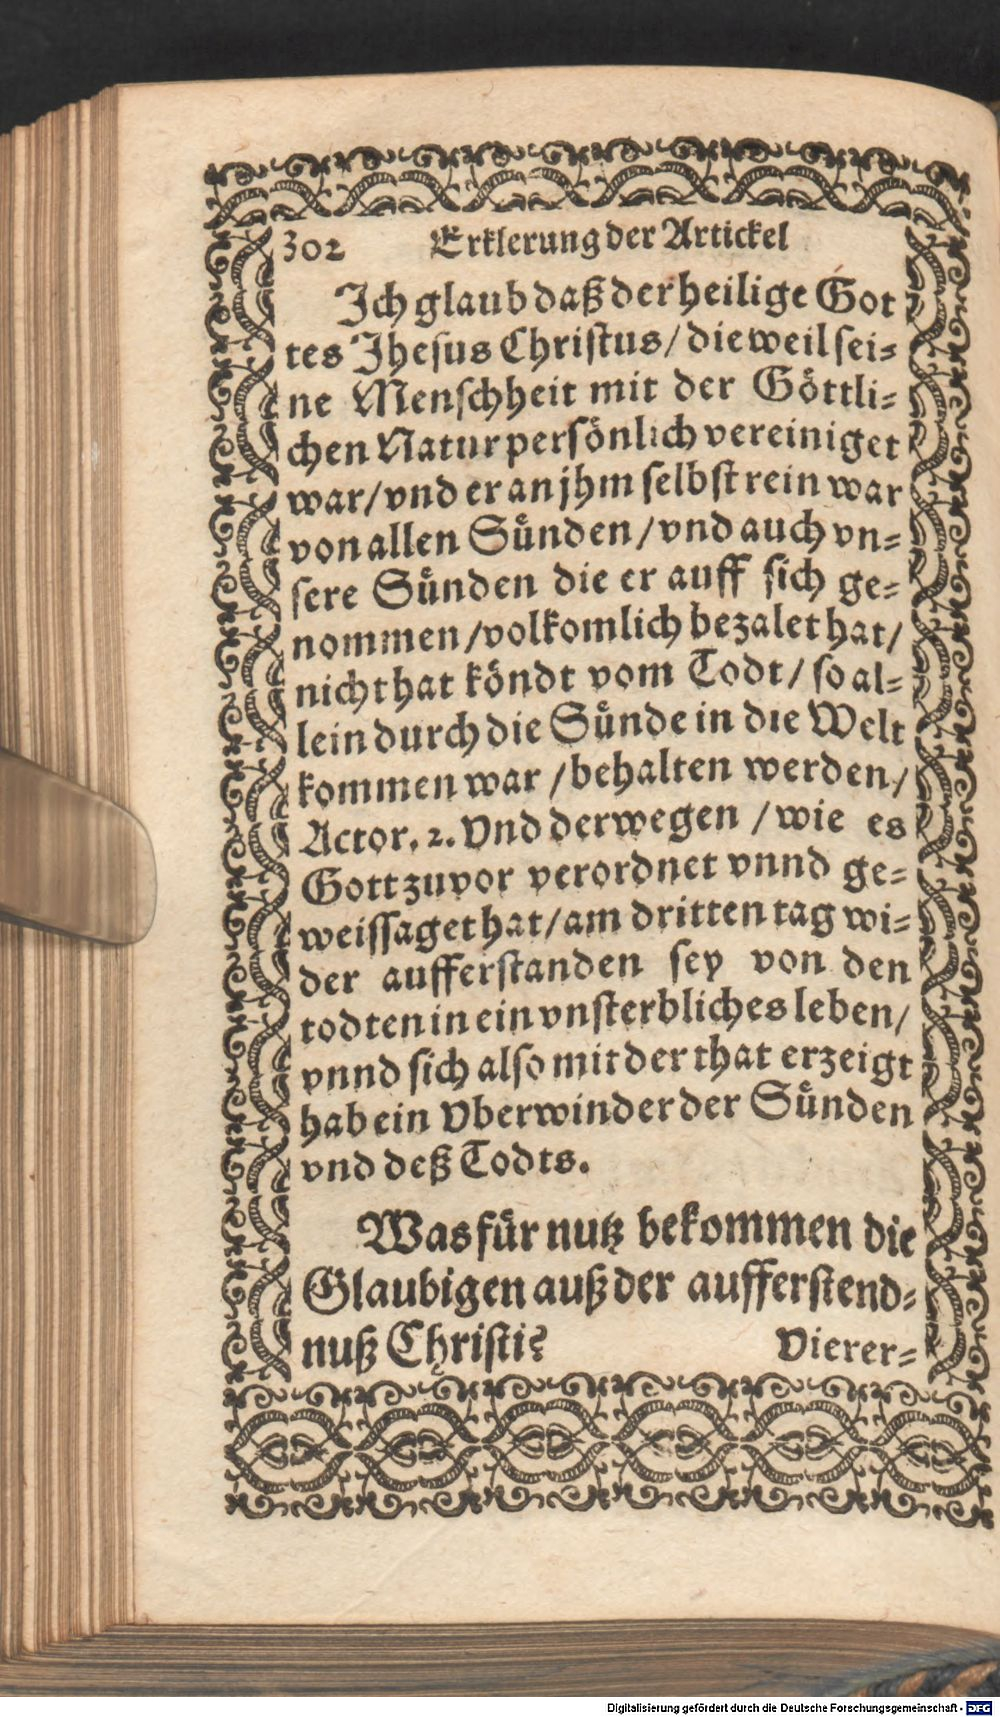 302 Erklerung der Artickel
Ich glaub daß der heilige Got
tes Jhesus Christus/ die weil sei-
ne Menschheit mit der Göttli-
chen Natur persönlich vereiniget
war/ vnd er an jhm selbst rein war
von allen Sünden/ vnd auch vn-
sere Sünden die er auff sich ge-
nommen/ volkomlich bezalet hat/
nicht hat köndt vom Todt/ so al-
lein durch die Sünde in die Welt
kommen war/ behalten werden/
Actor. 2. Vnd derwegen/ wie es
Gott zuvor verordnet vnnd ge-
weissaget hat/ am dritten tag wi-
der aufferstanden sey von den
todten in ein vnsterbliches leben/
vnnd sich also mit der that erzeigt
hab ein Vberwinder der Sünden
vnd deß Todts.
Was für nutz bekommen die
Glaubigen auß der aufferstend-
nuß Christi? Vierer-
Digitalisierung gefördert durch die Deutsche Forschungsgemeinschaft - DFG